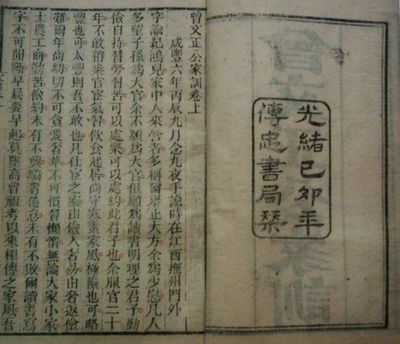 光緒己卯年
傳忠書局槧
曾文正公家訓卷上
咸豐六年丙辰九月念九夜手諭時在江西撫州門外
字諭紀鴻兒家中人來營者多稱爾舉止大方余為少慰凡人
多望子孫為大官余不願為大官但願為讀書明理之君子勤
儉自持習勞習苦可以處樂可以處約此君子也余服官二十
年不敢稍染官宦氣習飲食起居尚守寒素家風極儉也可略
豐也可太豐則吾不敢也凡仕宦之家由儉入奢易由奢返儉
難爾年尚幼切不可貪愛奢華不可慣習懶惰無論大家小家
士農工商勤苦儉約未有不興驕奢倦怠未有不敗爾讀書寫
字不可間斷早晨要早起莫墜高曾祖考以來相傳之家風吾